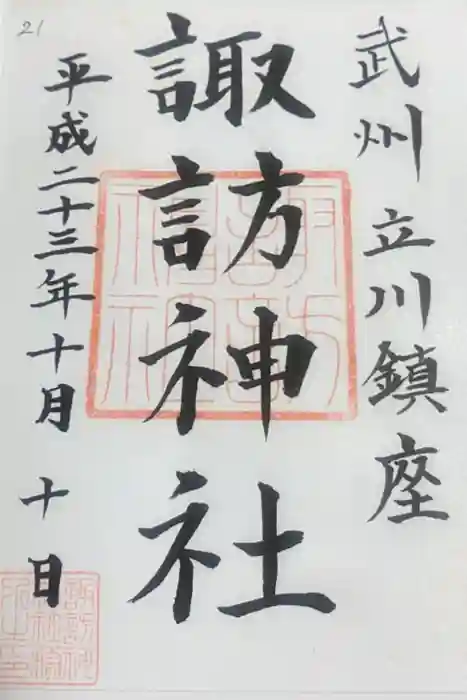 武州 立川鎮座
諏訪神社
平成二十三年十月 十日
21
諏訪神社